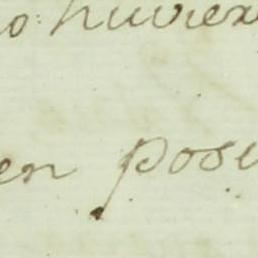 o huviex
en pose